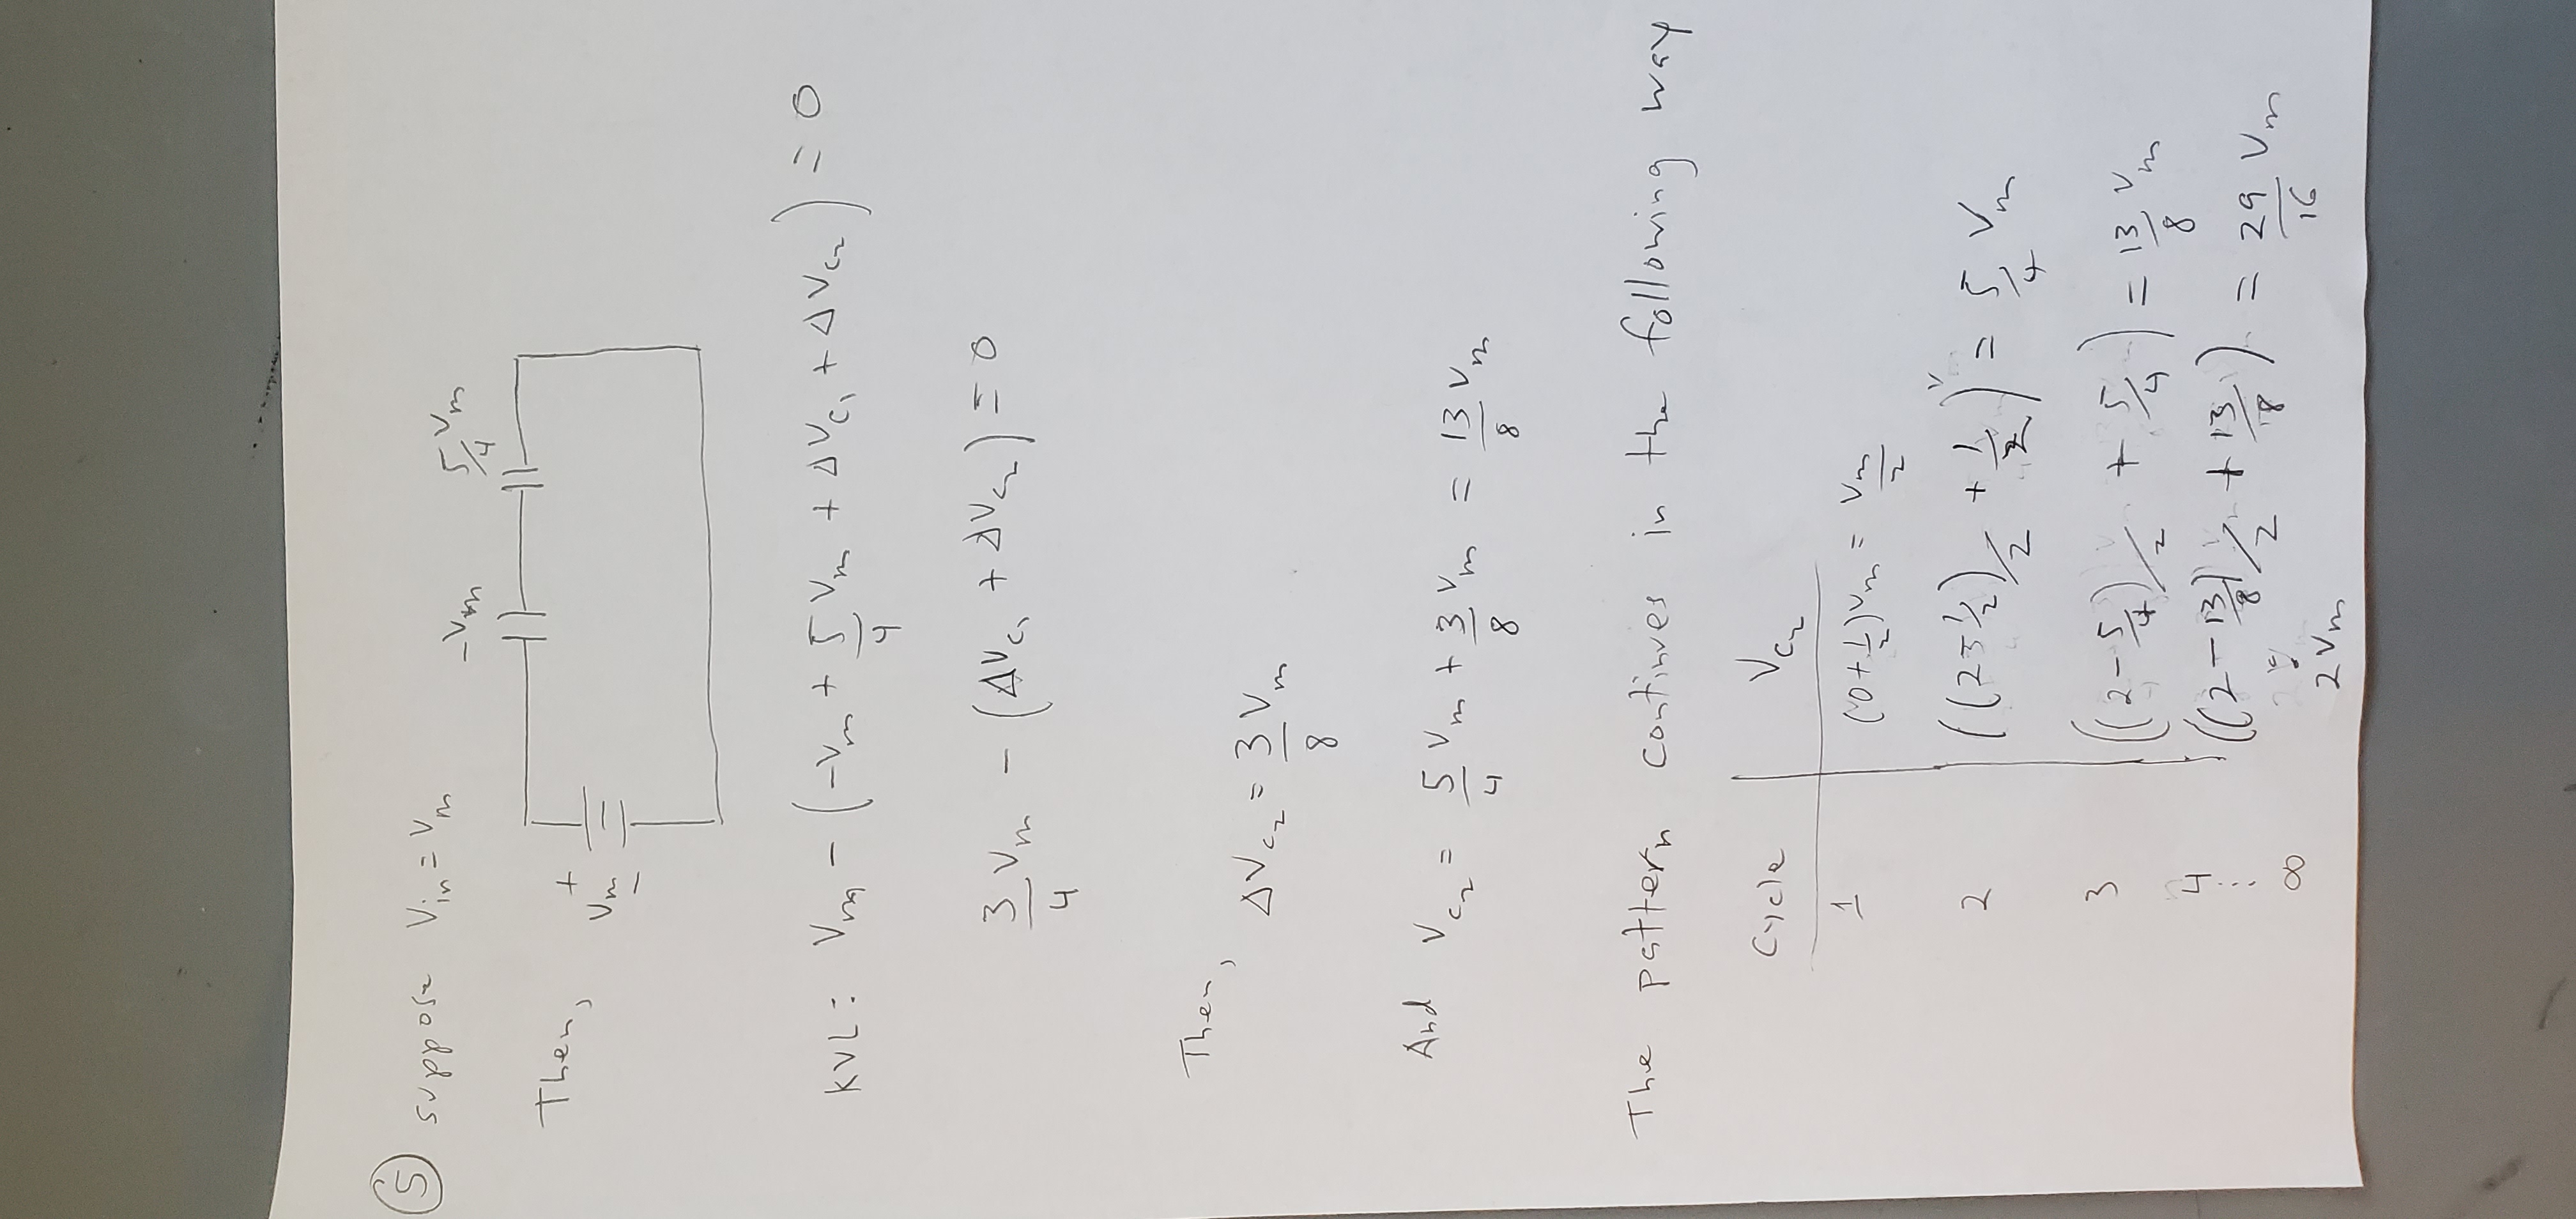 ⑤ suppose Vin = Vm
-Vm 5/4 Vm
Then,
+
Vm
-
KVL: Vm - (-Vm + 5/4 Vm + ΔVc1 + ΔVc2) = 0
3/4 Vm - (ΔVc1 + ΔVc2) = 0
Then,
ΔVc2 = 3/8 Vm
And Vc2 = 5/4 Vm + 3/8 Vm = 13/8 Vm
The pattern continues in the following way
Cycle Vc2
1 (0 + 1/2)Vm = Vm/2
2 ((2 - 1/2)/2 + 1/2)Vm = 5/4 Vm
3 ((2 - 5/4)/2 + 5/4) = 13/8 Vm
4 ((2 - 13/8)/2 + 13/8) = 29/16 Vm
⋮ ⋮
∞ 2Vm